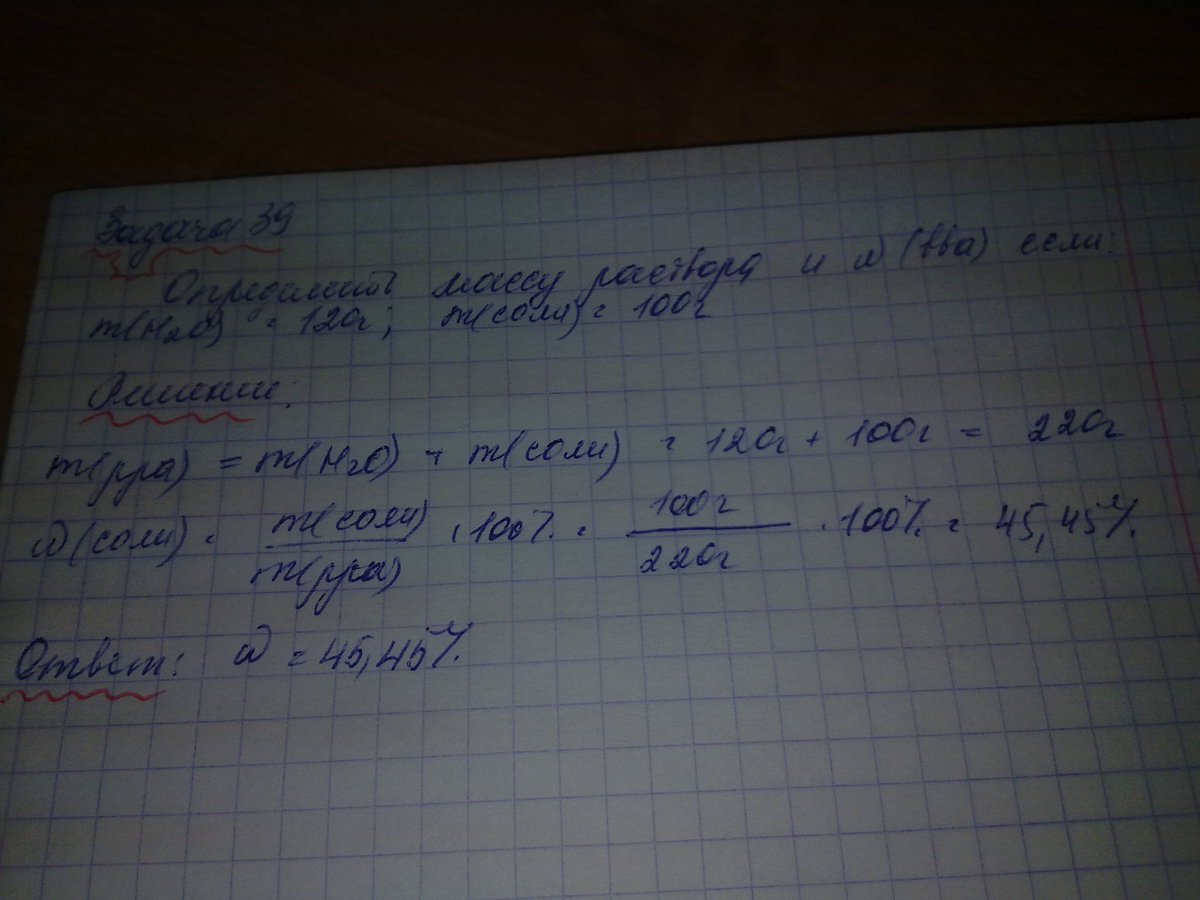 Задача 39
Определить массу раствора и ω (вва) если:
m(H₂O) = 120г; m(соли) = 100г
Решение:
m(рра) = m(H₂O) + m(соли) = 120г + 100г = 220г
ω (соли) = m(соли) / m(рра) · 100% = 100г / 220г · 100% = 45,45%
Ответ: ω = 45,45%